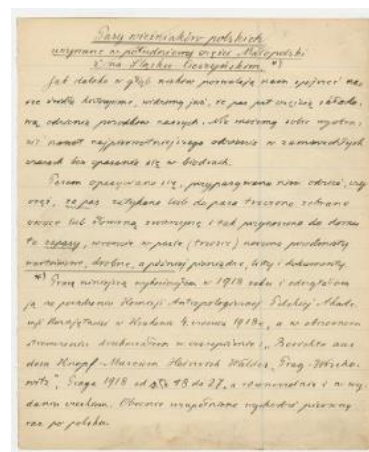 Pasy wieśniaków polskich
używane w południowej części Małopolski
i na Śląsku Cieszyńskim. *)
Jak daleko w głąb wieków pozwalają nam spojrzeć na
sze źródła historyczne, widzimy jak, że pas był częścią składo
wą odzienia przodków naszych. Nie możemy sobie wyobra
zić nawet najpierwotniejszego odzienia w zamierzchłych
czasach bez opasania się w biodrach.
Pasem opasywano się, przypasywano nim odzież, czy
oręż, za pas zatykano lub do pasa troczono zebrane
owoce lub łowiną zwierzynę i tak przynoszono do domu
te zapasy, wreszcie w pasie (trzosie) noszono przedmioty
wartościowe, drobne, a później pieniądze, listy i dokumenty.
*) Pracę niniejszą wykończyłem w 1918 roku i odczytałem
ją na posiedzeniu Komisji Antropologicznej Polskiej Akade
mji Umiejętności w Krakowie 4. czerwca 1918 r., a w obszernem
streszczeniu drukowałem w czasopiśmie: "Berichte aus
dem Knopf-Museum Heinrich Waldes, Prag-Wrscho
witz", Praga 1918 od str. 18 do 27, a równocześnie i w wy
daniu czeskiem. Obecnie uzupełniona wychodzi pierwszy
raz po polsku.